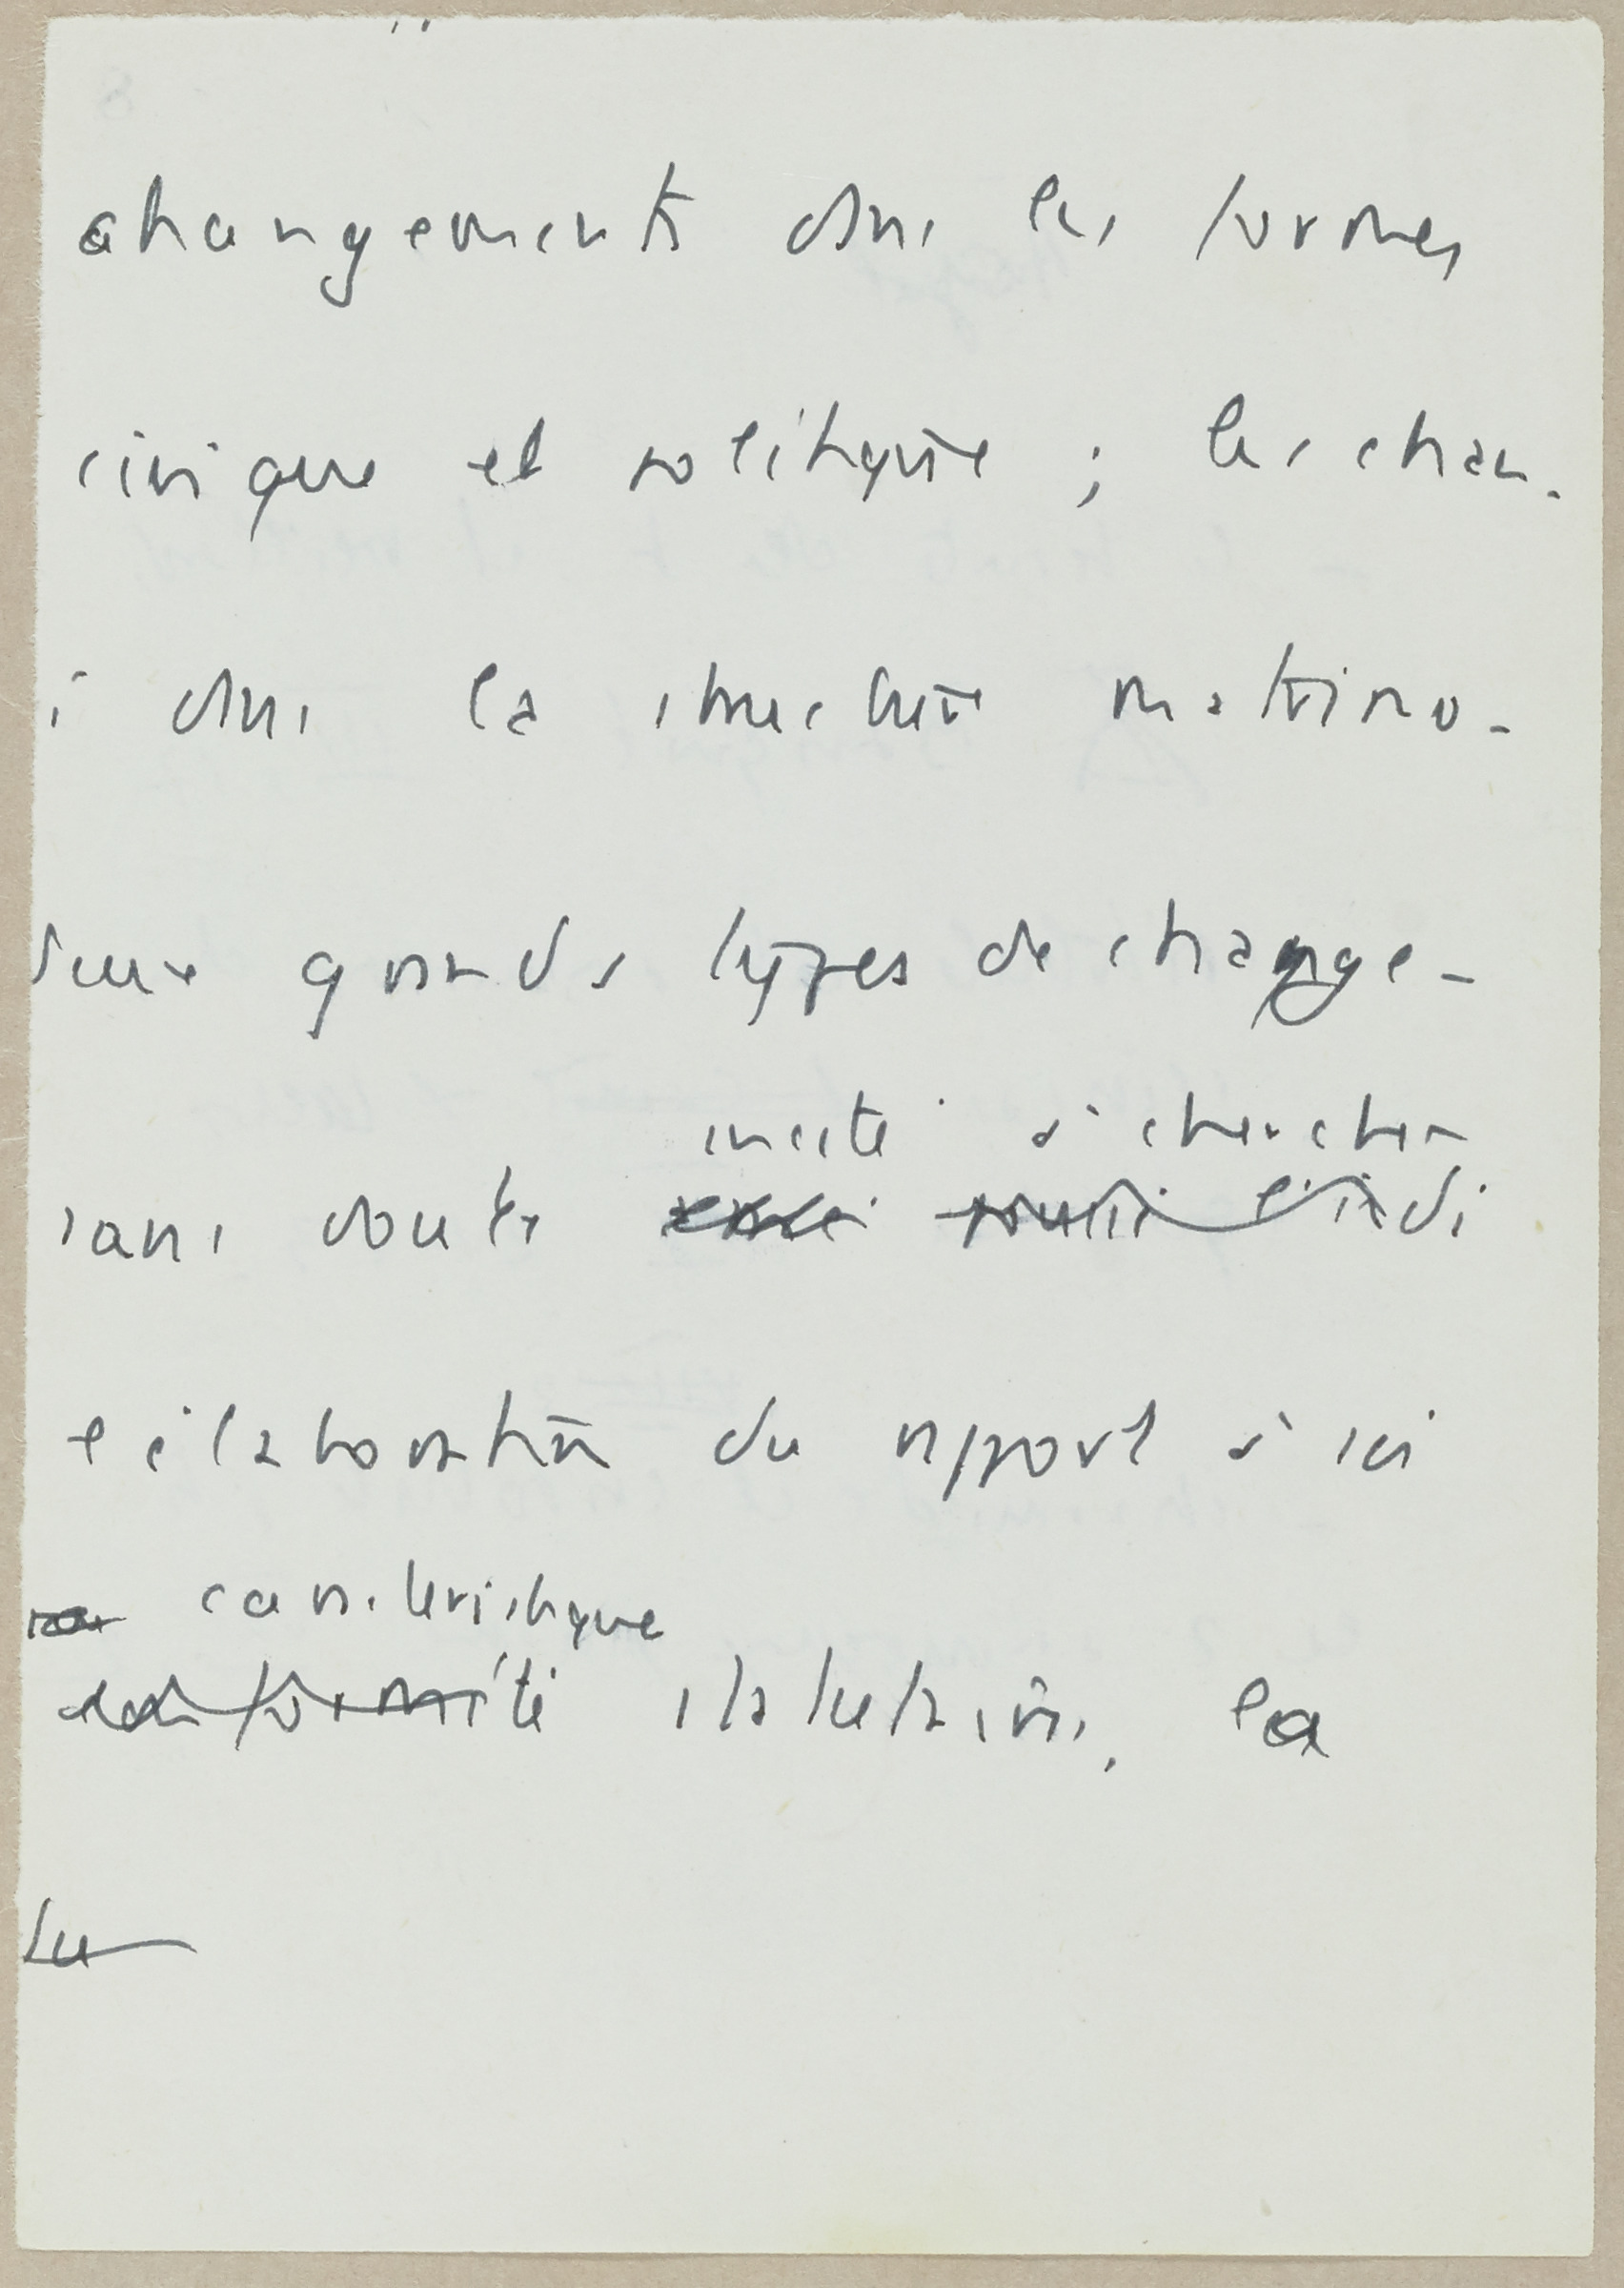 changements dans les formes
civique et politique ; les chan-
s dans la structure matrimo-
deux grands types de change-
incité à chercher
sans doute
l'élaboration du rapport à soi
caractéristique
la